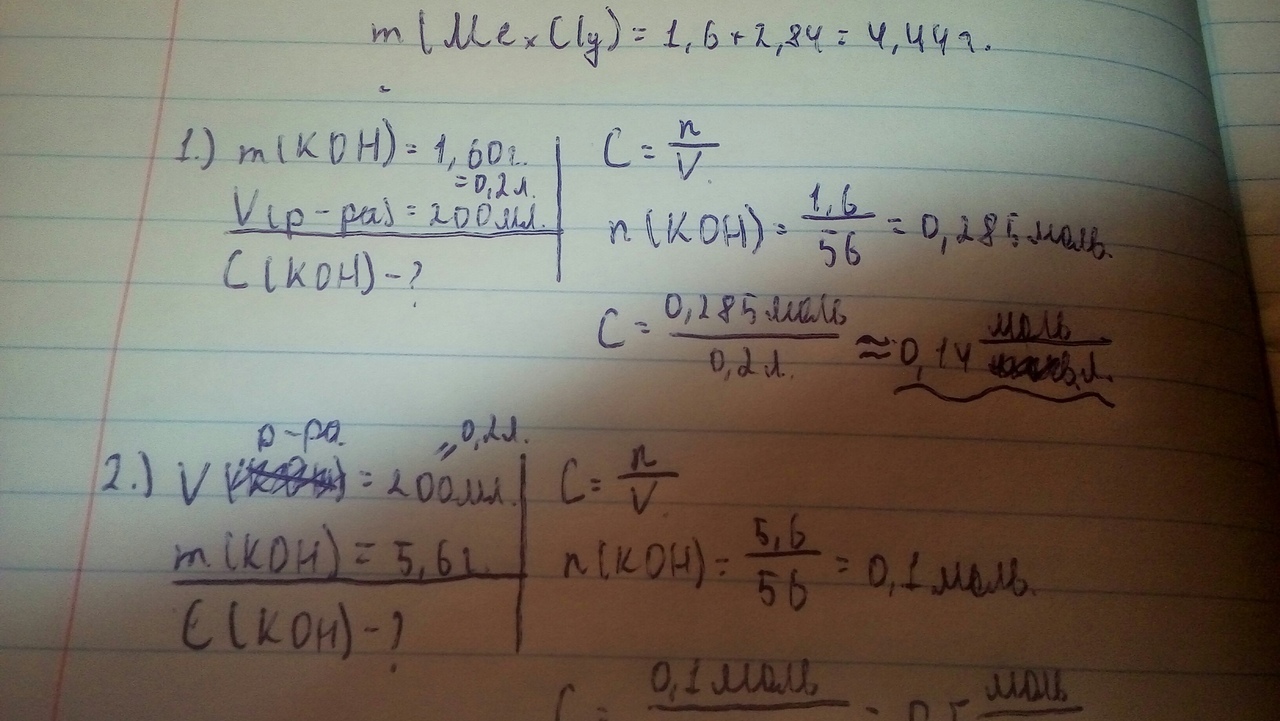 m(MexCly) = 1,6 + 2,84 = 4,44 г.
1.) m(KOH) = 1,60 г.
= 0,2 л.
V(р-ра) = 200 мл.
C(KOH) - ?
C = n/V
n(KOH) = 1,6/56 = 0,285 моль.
C = 0,285 моль/0,2 л. ≈ 0,14 моль/л.
2.) V р-ра = 200 мл. = 0,2 л.
m(KOH) = 5,6 г.
C(KOH) - ?
C = n/V
n(KOH) = 5,6/56 = 0,1 моль.
C = 0,1 моль = 0,5 моль